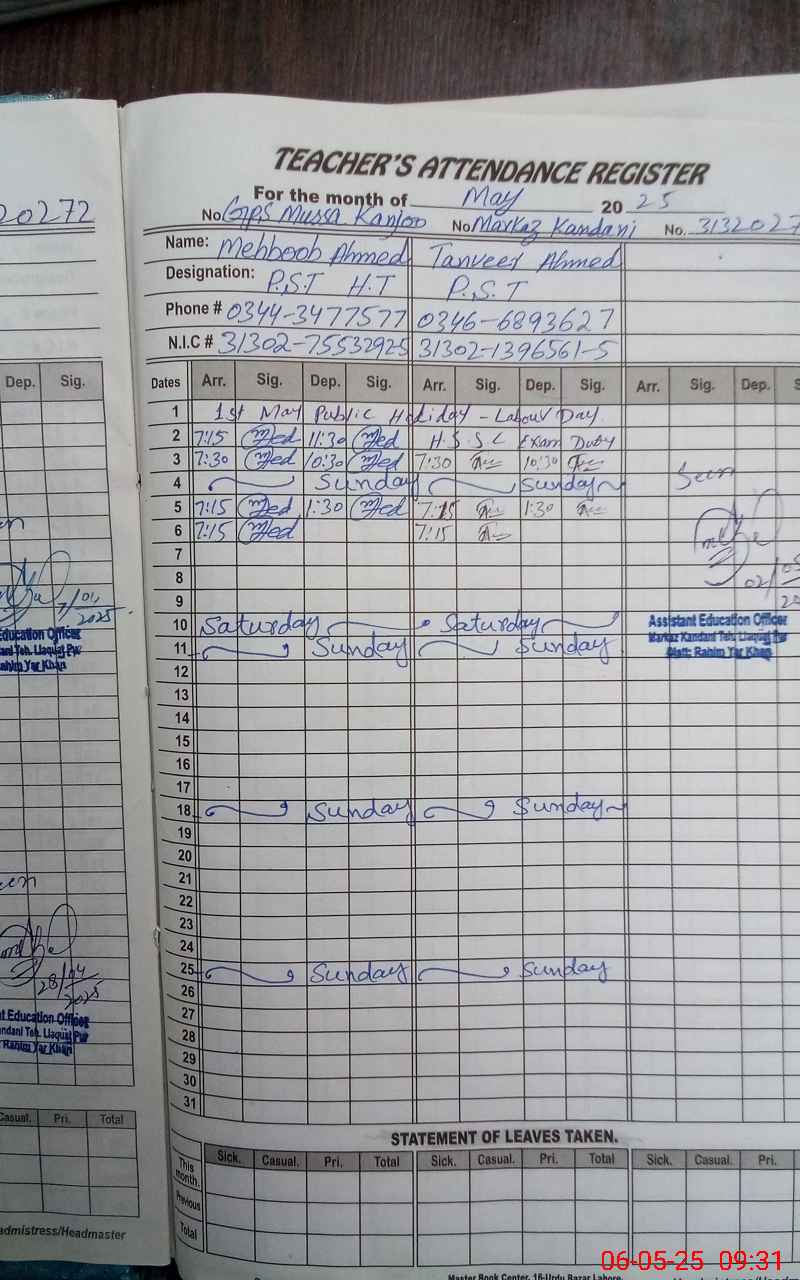 TEACHER'S ATTENDANCE REGISTER
For the month of May 2025
No. GPS Mussa Kanjoo No Markaz Kandani No. 3132027
20272
Name: Mehboob Ahmed Tanveer Ahmed
Designation: P.S.T H.T P.S.T
Phone # 0344-3477577 0346-6893627
N.I.C # 31302-75532925 31302-1396561-5
Dep. Sig. Dates Arr. Sig. Dep. Sig. Arr. Sig. Dep. Sig. Arr. Sig. Dep. S
1 1st May Public Holiday - Labour Day.
2 7:15 11:30 H.S.S.C Exam Duty
3 7:30 10:30 7:30 10:30
4 Sunday Sunday Seen
5 7:15 1:30 7:15 1:30
6 7:15 7:15
7
8 02/05
9 20
10 Saturday Saturday
11 Sunday Sunday
12
13
14
15
16
17
18 Sunday Sunday
19
20
21
22
23
24
25 Sunday Sunday
26
27
28
29
30
31
Assistant Education Officer
Markaz Kandani Teh. Liaquat Pur
Distt: Rahim Yar Khan
2025
Education Officer
ani Teh. Liaquat Pur
ahim Yar Khan
een
28/04
2025
t Education Officer
ndani Teh. Liaquat Pur
Rahim Yar Khan
STATEMENT OF LEAVES TAKEN.
Casual. Pri. Total
Sick. Casual. Pri. Total Sick. Casual. Pri. Total Sick. Casual. Pri.
This month.
Previous
Total
admistress/Headmaster
Master Book Center, 16-Urdu Bazar Lahore
06-05-25 09:31